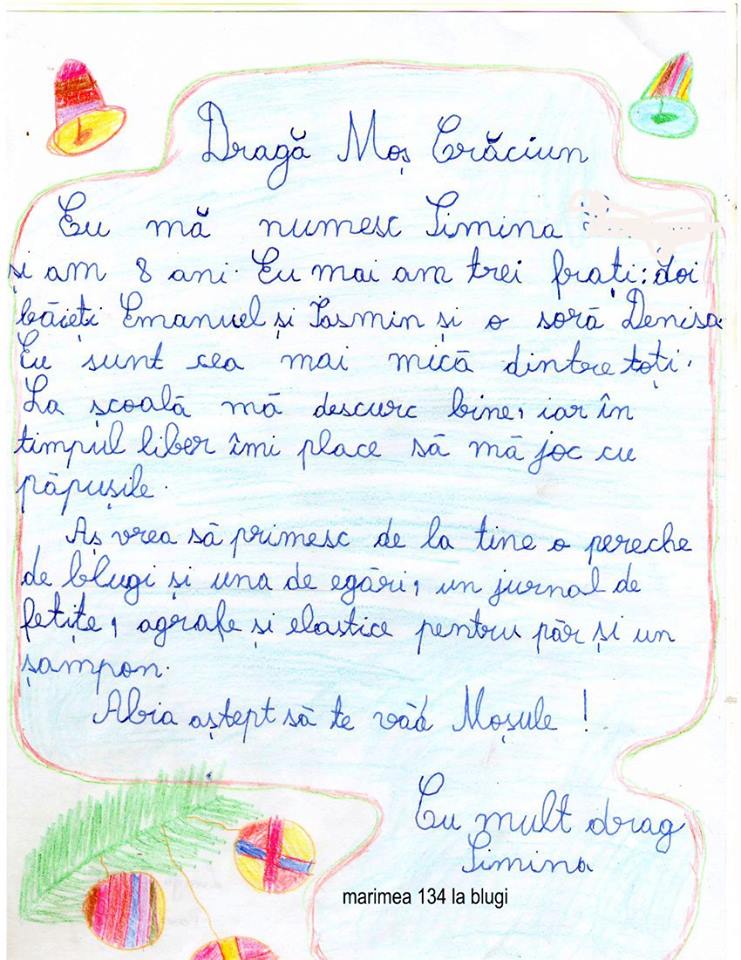 Dragă Moș Crăciun
Eu mă numesc Simina
și am 8 ani. Eu mai am trei frați: doi
băieți Emanuel și Iasmin și o soră, Denisa.
Eu sunt cea mai mică dintre toți.
La școală mă descurc bine, iar în
timpul liber îmi place să mă joc cu
păpușile.
Aș vrea să primesc de la tine o pereche
de blugi și una de egări, un jurnal de
fetițe, agrafe și elastice pentru păr și un
șampon.
Abia aștept să te văd Moșule!
Cu mult drag
Simina
marimea 134 la blugi